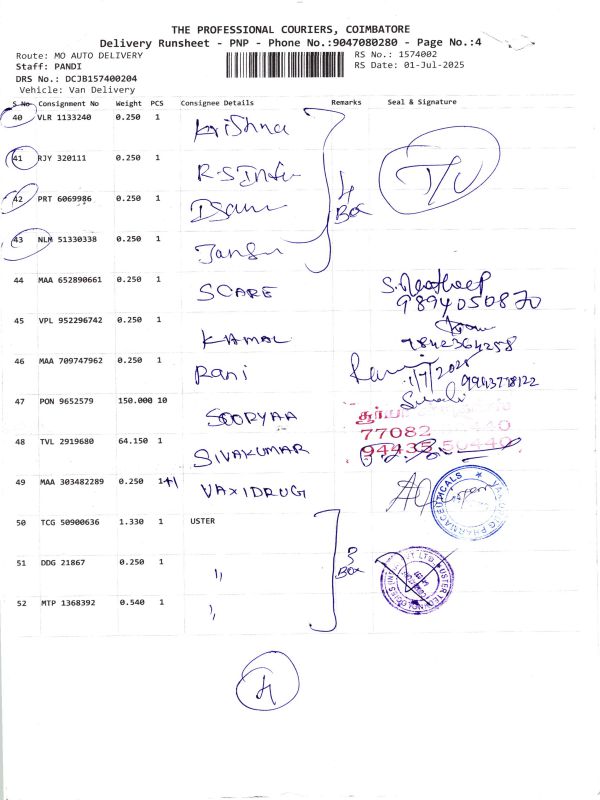 THE PROFESSIONAL COURIERS, COIMBATORE
Delivery Runsheet - PNP - Phone No.:9047080280 - Page No.:4
Route: MO AUTO DELIVERY RS No.: 1574002
Staff: PANDI RS Date: 01-Jul-2025
DRS No.: DCJB157400204
Vehicle: Van Delivery
S No Consignment No Weight PCS Consignee Details Remarks Seal & Signature
40 VLR 1133240 0.250 1 Krishna
41 RJY 320111 0.250 1 R.S
42 PRT 6069986 0.250 1
4 Box
43 NLM 51330338 0.250 1
44 MAA 652890661 0.250 1 SCARE
9894050870
45 VPL 952296742 0.250 1 KAMAL
9842364258
46 MAA 709747962 0.250 1 Rani
1/7/2025 9943778122
47 PON 9652579 150.000 10 SOORYAA
77082 440
48 TVL 2919680 64.150 1 SIVAKUMAR 94435 50440
49 MAA 303482289 0.250 1+1 VAXIDRUG
PHARMACEUTICALS
50 TCG 50900636 1.330 1 USTER
51 DDG 21867 0.250 1 ,, 3 Box
52 MTP 1368392 0.540 1 ,,